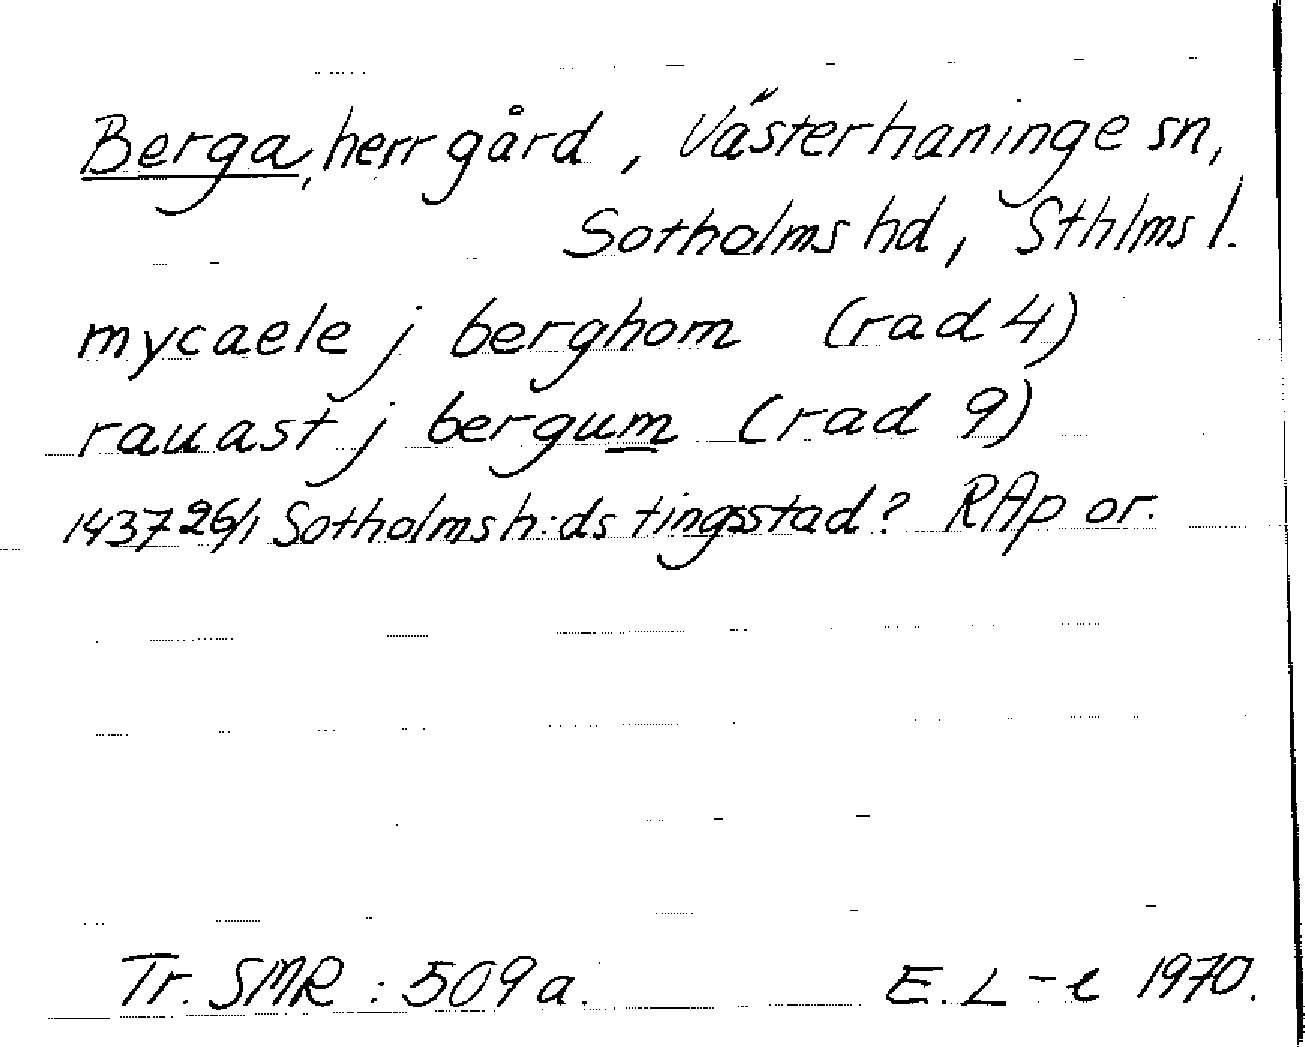 Berga, herrgård, Västerhaninge sn,
Sotholms hd, Sthlms l.
mycaele j berghom (rad 4)
rauast j bergum (rad 9)
1437 26/1 Sotholms h:ds tingsstad? RAp or.
Tr. SMR: 509 a. E. L-e 1970.